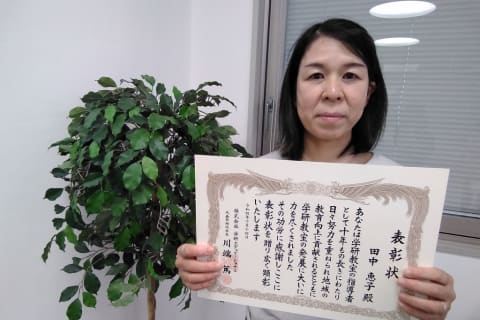 表彰状
田中 恵子 殿
あなたは学研教室の指導者
として十年もの長きにわたり
日々努力を重ねられ地域の
教育向上に貢献されるとともに
学研教室の発展に大いに
力を尽くされました
その功労に感謝しここに
表彰状を贈り広く顕彰
いたします
川端 篤